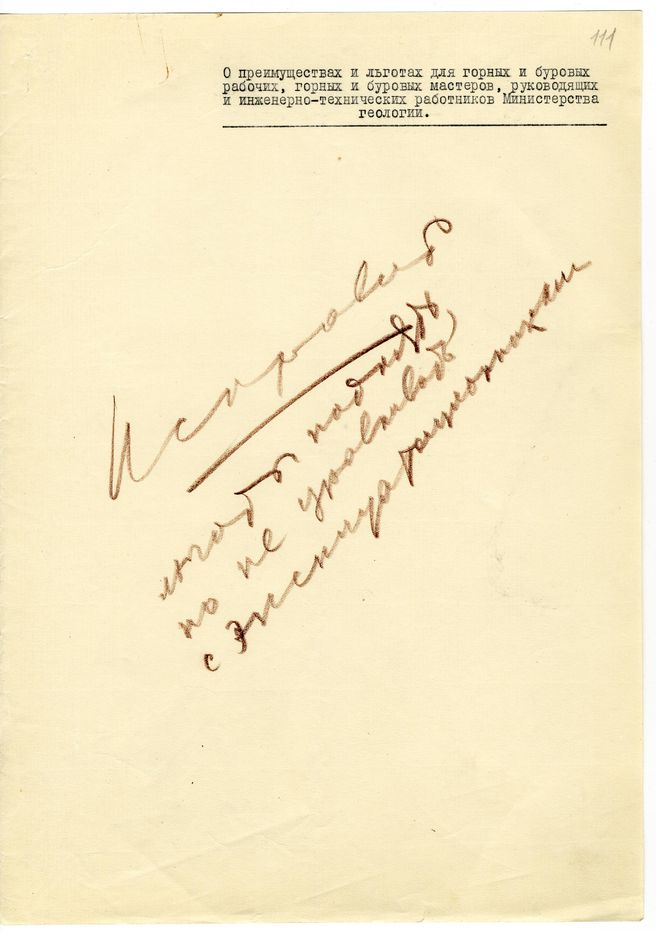 111
О преимуществах и льготах для горных и буровых
рабочих, горных и буровых мастеров, руководящих
и инженерно-технических работников Министерства
геологии.
Исправить
льготы поднять,
но не уравнивать
с эксплуатационниками